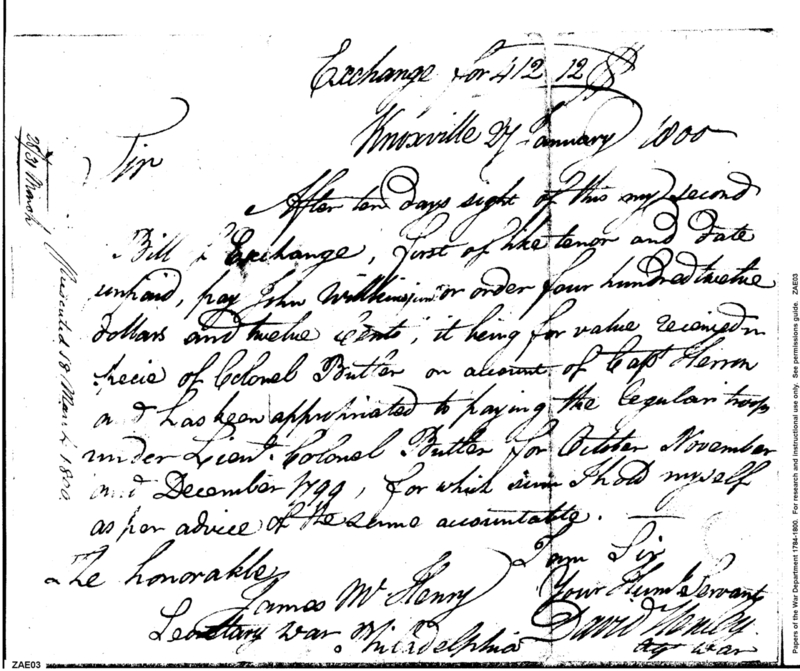 Exchange for 412 12
Knoxville 27 January 1800
Sir
After ten days sight of this my second
Bill of Exchange, first of like tenor and date
unhaid, pay John Wilkins Junr or order four hundred twelve
dollars and twelve Cents, it being for value received in
specie of Colonel Butler on account of Capt Herron
and has been appropriated to paying the regular troops
under Lieut. Colonel Butler for October November
and December 1799, for which sum I hold myself
as per advice of the same accountable.
I am Sir
Your Humb Servant
David Henley
agt war
The honorable
James McHenry
Secretary War Philadelphia
31 March
Presented 18 March 1800
ZAE03
Papers of the War Department 1784-1800. For research and instructional use only. See permissions guide. ZAE03